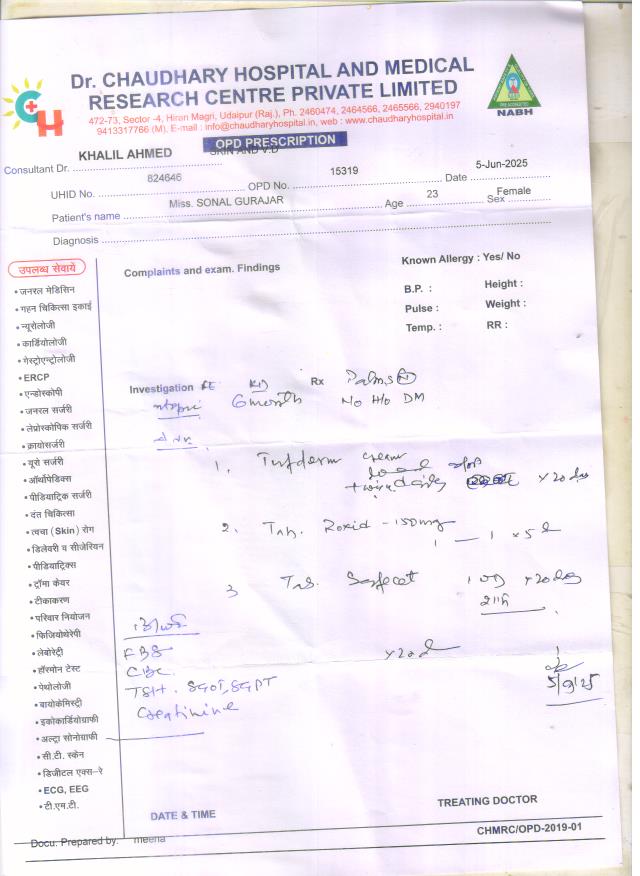 Dr. CHAUDHARY HOSPITAL AND MEDICAL
RESEARCH CENTRE PRIVATE LIMITED
472-73, Sector -4, Hiran Magri, Udaipur (Raj.), Ph. 2460474, 2464566, 2465566, 2940197
9413317766 (M), E-mail : info@chaudharyhospital.in, web : www.chaudharyhospital.in
NABH
OPD PRESCRIPTION
Consultant Dr. KHALIL AHMED SKIN AND V.D
UHID No. 824646 OPD No. 15319 Date 5-Jun-2025
Patient's name Miss. SONAL GURAJAR Age 23 Sex Female
Diagnosis
उपलब्ध सेवायें
• जनरल मेडिसिन
• गहन चिकित्सा इकाई
• न्यूरोलॉजी
• कार्डियोलॉजी
• गेस्ट्रोएन्ट्रोलॉजी
• ERCP
• एन्डोस्कोपी
• जनरल सर्जरी
• लेप्रोस्कोपिक सर्जरी
• क्रायोसर्जरी
• यूरो सर्जरी
• ऑर्थोपेडिक्स
• पीडियाट्रिक सर्जरी
• दंत चिकित्सा
• त्वचा (Skin) रोग
• डिलेवरी व सीजेरियन
• पीडियाट्रिक्स
• ट्रॉमा केयर
• टीकाकरण
• परिवार नियोजन
• फिजियोथेरेपी
• लेबोरेट्री
• हॉरमोन टेस्ट
• पेथोलॉजी
• बायोकेमिस्ट्री
• इकोकार्डियोग्राफी
• अल्ट्रा सोनोग्राफी
• सी.टी. स्केन
• डिजीटल एक्स-रे
• ECG, EEG
• टी.एम.टी.
Complaints and exam. Findings
Known Allergy : Yes/ No
B.P. : Height :
Pulse : Weight :
Temp. : RR :
Investigation Rx Palms
6 month No H/o DM
1. cream
twice daily x 20 days
2. Tab. Roxid - 150mg
1 — 1 x 5 d
3 Tab. x 20 days
FBS x 20 d
CBC
TSH. SGOT, SGPT
Creatinine
5/9/25
DATE & TIME
TREATING DOCTOR
Docu. Prepared by. meena
CHMRC/OPD-2019-01